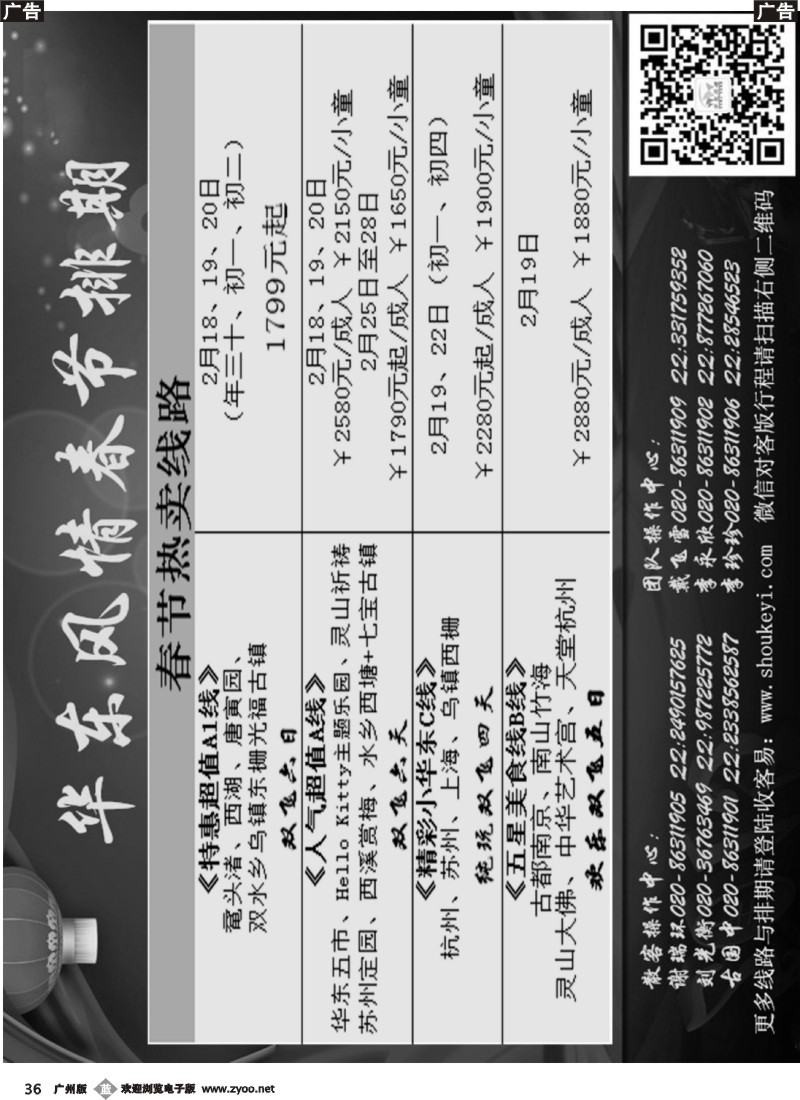 广告
广告
华东风情春节排期
春节热卖线路
《特惠超值A1线》
鼋头渚、西湖、唐寅园、
双水乡乌镇东栅光福古镇
双飞六日
2月18、19、20日
（年三十、初一、初二）
1799元起
《人气超值A线》
华东五市、Hello Kitty主题乐园、灵山祈祷
苏州定园、西溪赏梅、水乡西塘+七宝古镇
双飞六天
2月18、19、20日
￥2580元/成人 ￥2150元/小童
2月25日至28日
￥1790元起/成人 ￥1650元/小童
《精彩小华东C线》
杭州、苏州、上海、乌镇西栅
纯玩双飞四天
2月19、22日（初一、初四）
￥2280元起/成人 ￥1900元/小童
《五星美食线B线》
古都南京、南山竹海
灵山大佛、中华艺术宫、天堂杭州
欢乐双飞五日
2月19日
￥2880元/成人 ￥1880元/小童
散客操作中心：
谢瑞环020-86311905 22:2490157625
刘光衡020-36763469 22:987225772
古国中020-86311901 22:2338562587
团队操作中心：
戴飞雪020-86311909 22:331759352
李永欣020-86311902 22:877267060
李珍珍020-86311906 22:28546523
更多线路与排期请登陆收客易：www.shoukeyi.com 微信对客版行程请扫描右侧二维码
36 广州版 蓝 欢迎浏览电子版 www.zyoo.net